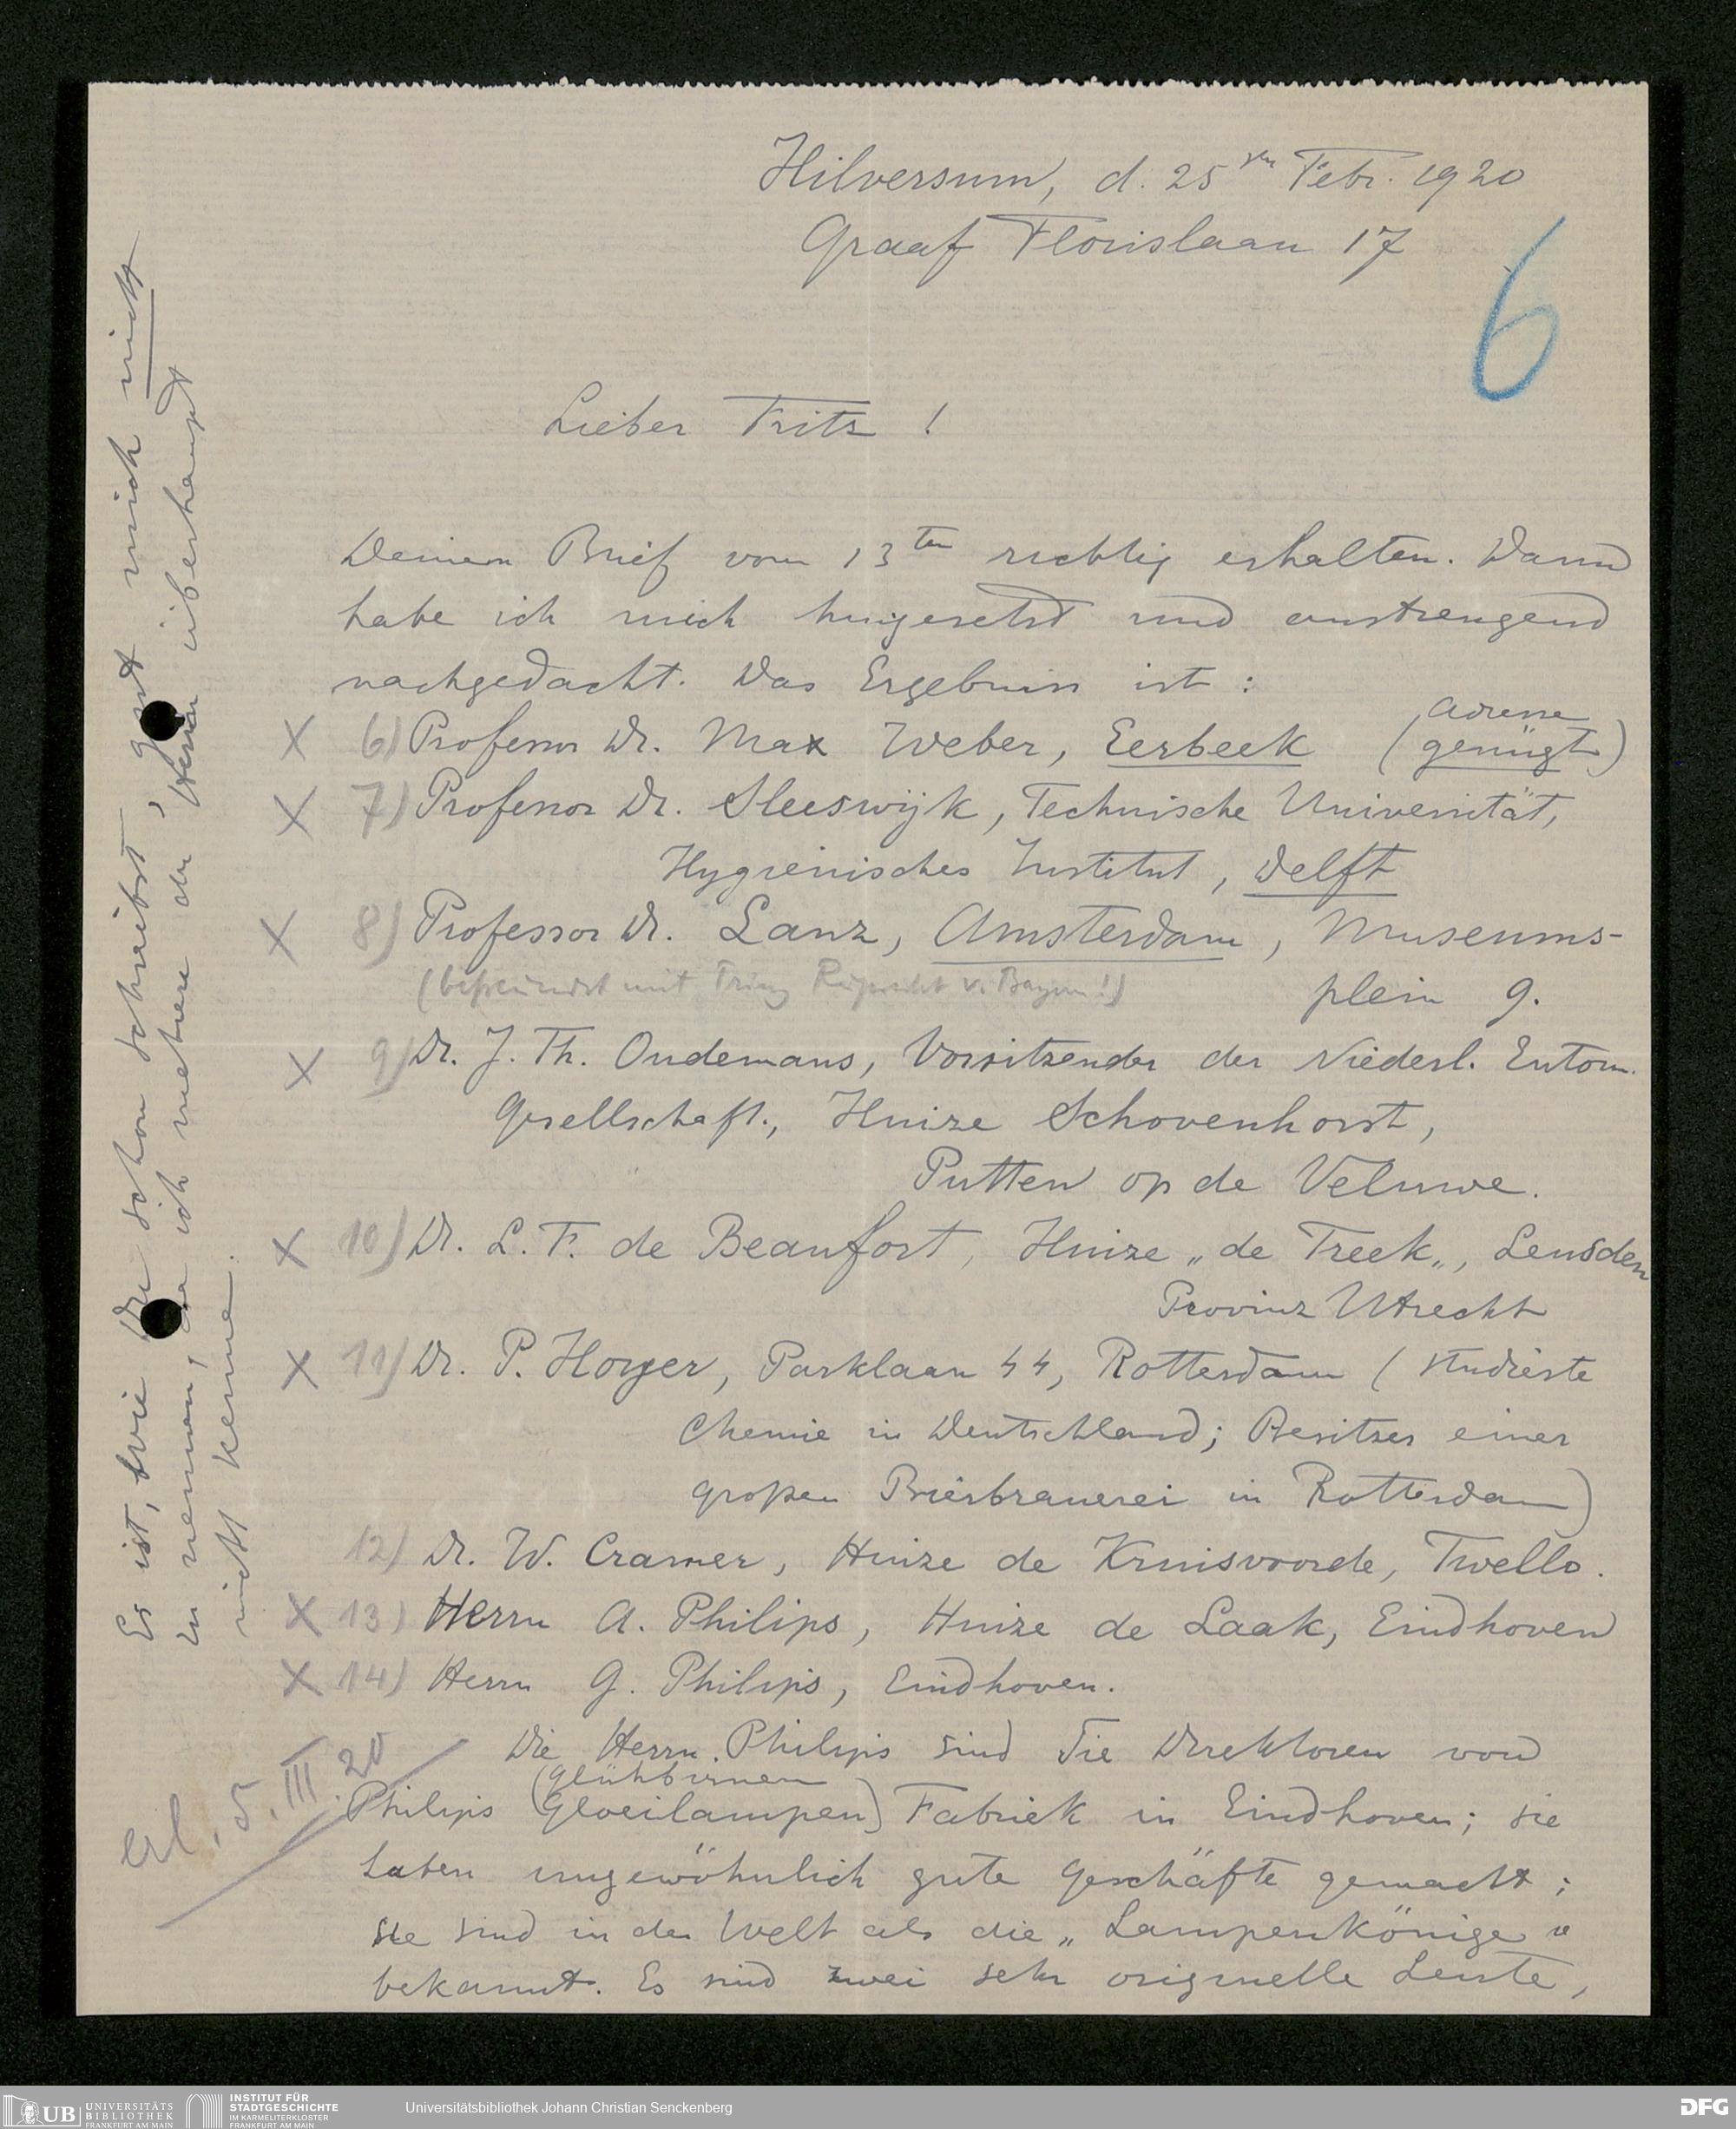 Hilversum, d. 25ten Febr. 1920
Graaf Florislaan 17
6
Lieber Fritz !
Deinen Brief vom 13ten richtig erhalten. Dann
habe ich mich hingesetzt und anstrengend
nachgedacht. Das Ergebnis ist :
X 6) Professor Dr. Max Weber, Eerbeek (Adresse genügt)
X 7) Professor Dr. Sleeswijk, Technische Universität,
Hygienisches Institut, Delft
X 8) Professor Dr. Lanz, Amsterdam, Museums-
(befreundet mit Prinz Rupprecht v. Bayern!) plein 9.
X 9) Dr. J. Th. Oudemans, Vorsitzender der Niederl. Entom.
Gesellschaft., Huize Schovenhorst,
Putten op de Veluwe.
X 10) Dr. L. F. de Beaufort, Huize „de Treek„, Leusden
Provinz Utrecht
X 11) Dr. P. Hoyer, Parklaan 44, Rotterdam (studierte
Chemie in Deutschland; Besitzer einer
großen Bierbrauerei in Rotterdam)
12) Dr. W. Cramer, Huize de Kruisvoorde, Twello.
X 13) Herrn A. Philips, Huize de Laak, Eindhoven
X 14) Herrn G. Philips, Eindhoven.
Die Herrn. Philips sind die Direktoren von
Philips (Glühbirnen Gloeilampen) Fabriek in Eindhoven; sie
haben ungewöhnlich gute Geschäfte gemacht;
sie sind in der Welt als die „Lampenkönige"
bekannt. Es sind zwei sehr originelle Leute,
Es ist, wie Du schon schreibst, gut mich nicht
zu nennen, da ich mehrere der Herren überhaupt
nicht kenne.
erl. 5. III. 20
UB UNIVERSITÄTS
BIBLIOTHEK
FRANKFURT AM MAIN
INSTITUT FÜR
STADTGESCHICHTE
IM KARMELITERKLOSTER
FRANKFURT AM MAIN
Universitätsbibliothek Johann Christian Senckenberg
DFG